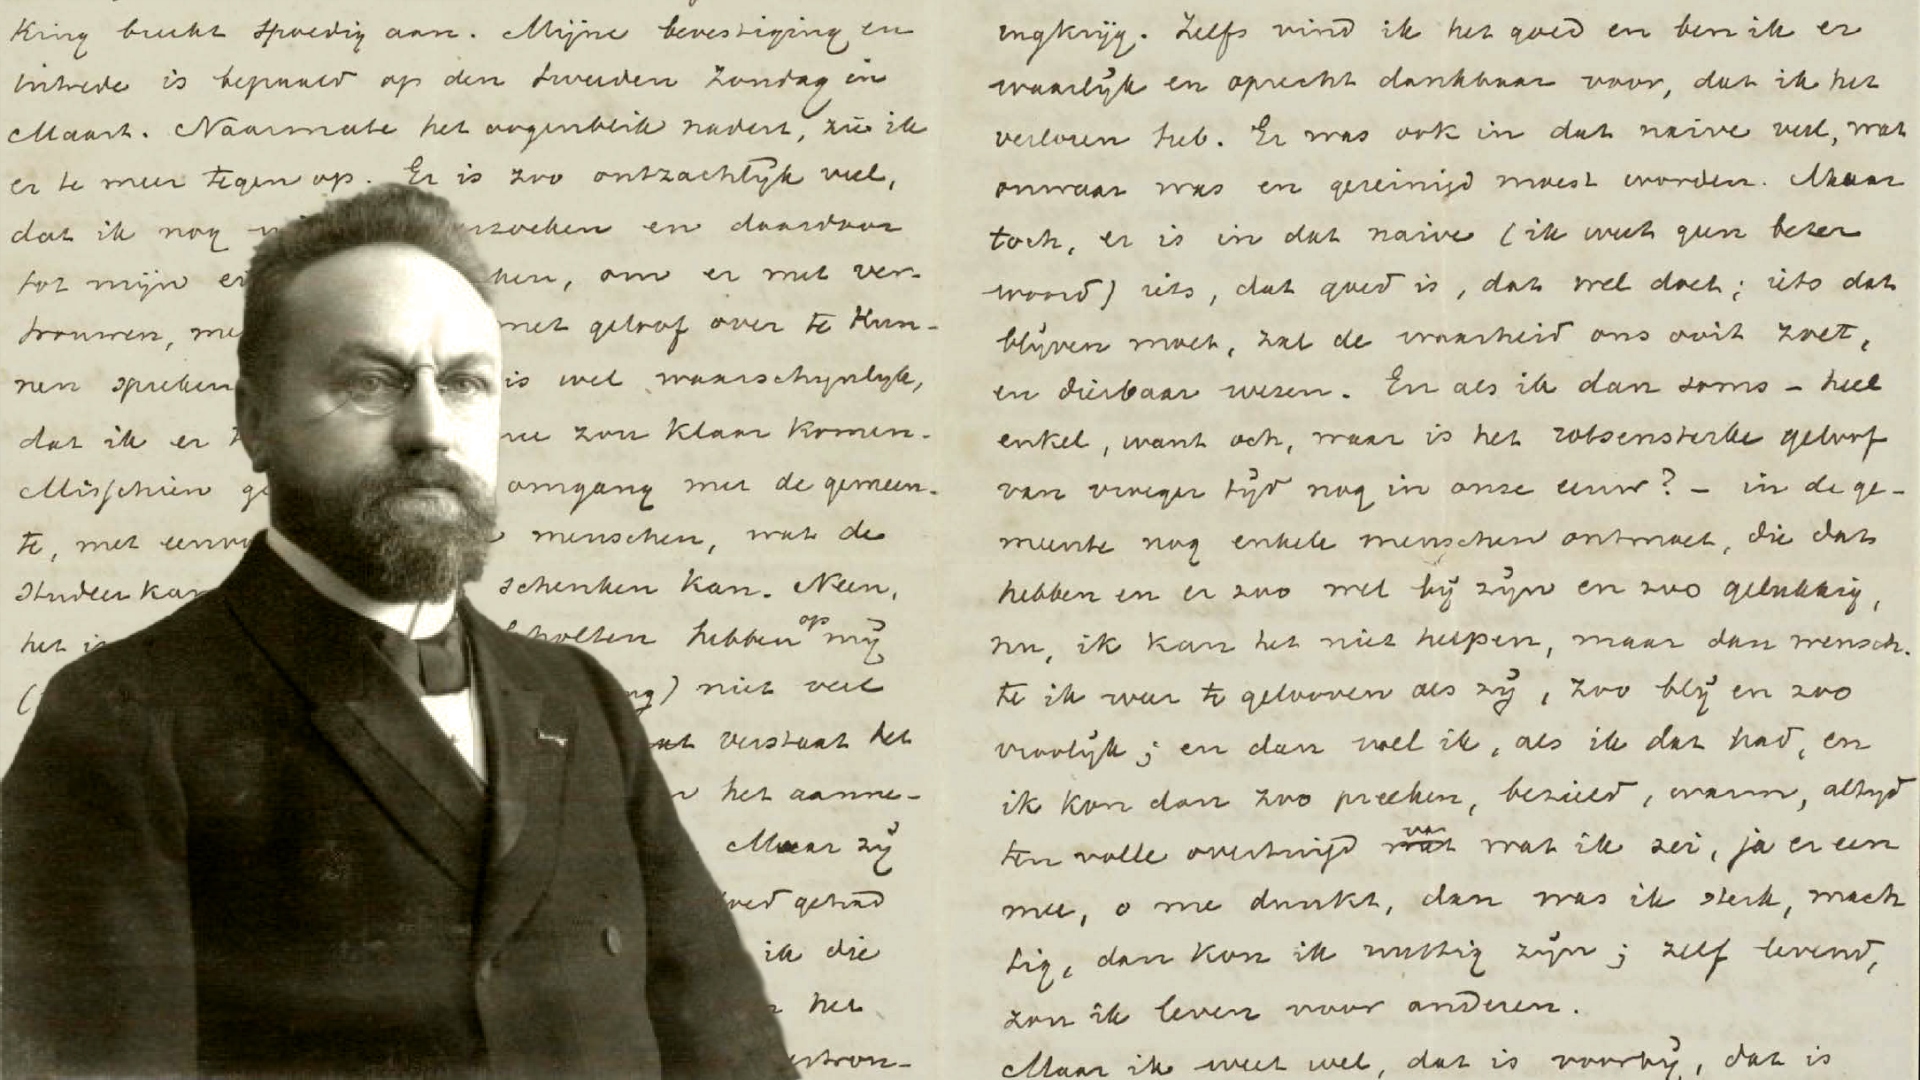 King breekt spoedig aan. Mijne bevestiging en
intrede is bepaald op den tweeden Zondag in
Maart. Naarmate het oogenblik nadert, zie ik
er te meer tegen op. Er is zoo ontzachlijk veel,
dat ik nog zoeken en daardoor
tot mijn om er met ver-
trouwen, met geloof over te kun-
nen spreken is wel waarschynlyk,
dat ik er zou klaar komen.
Misschien omgang met de gemeen-
te, met menschen, wat de
studeerkan schenken kan. Neen,
het hebben op mij
niet veel
verstaat het
het aanne-
Maar zij
gehad
ik die
het
ingkrijg. Zelfs vind ik het goed en ben ik er
waarlijk en oprecht dankbaar voor, dat ik het
verloren heb. Er was ook in dat naive veel, wat
onwaar was en gereinigd moest worden. Maar
toch, er is in dat naive (ik weet geen beter
woord) iets, dat goed is, dat wel doet; iets dat
blijven moet, zal de waarheid ons ooit zoet,
en dierbaar wezen. En als ik dan soms – heel
enkel, want och, waar is het rotsensterke geloof
van vroeger tijd nog in onze eeuw? – in de ge-
meente nog enkele menschen ontmoet, die dat
hebben en er zoo wel bij zijn en zoo gelukkig,
nu, ik kan het niet helpen, maar dan wensch-
te ik weer te gelooven als zij, zoo blij en zoo
vroolijk; en dan voel ik, als ik dat had, en
ik kon dan zoo preeken, bezield, warm, altyd
ten volle overtuigd van wat ik zei, ja er een
mee, o me dunkt, dan was ik sterk, mach
tig, dan kon ik nuttig zijn; zelf levend,
zou ik leven voor anderen.
Maar ik weet wel, dat is voorbij, dat is